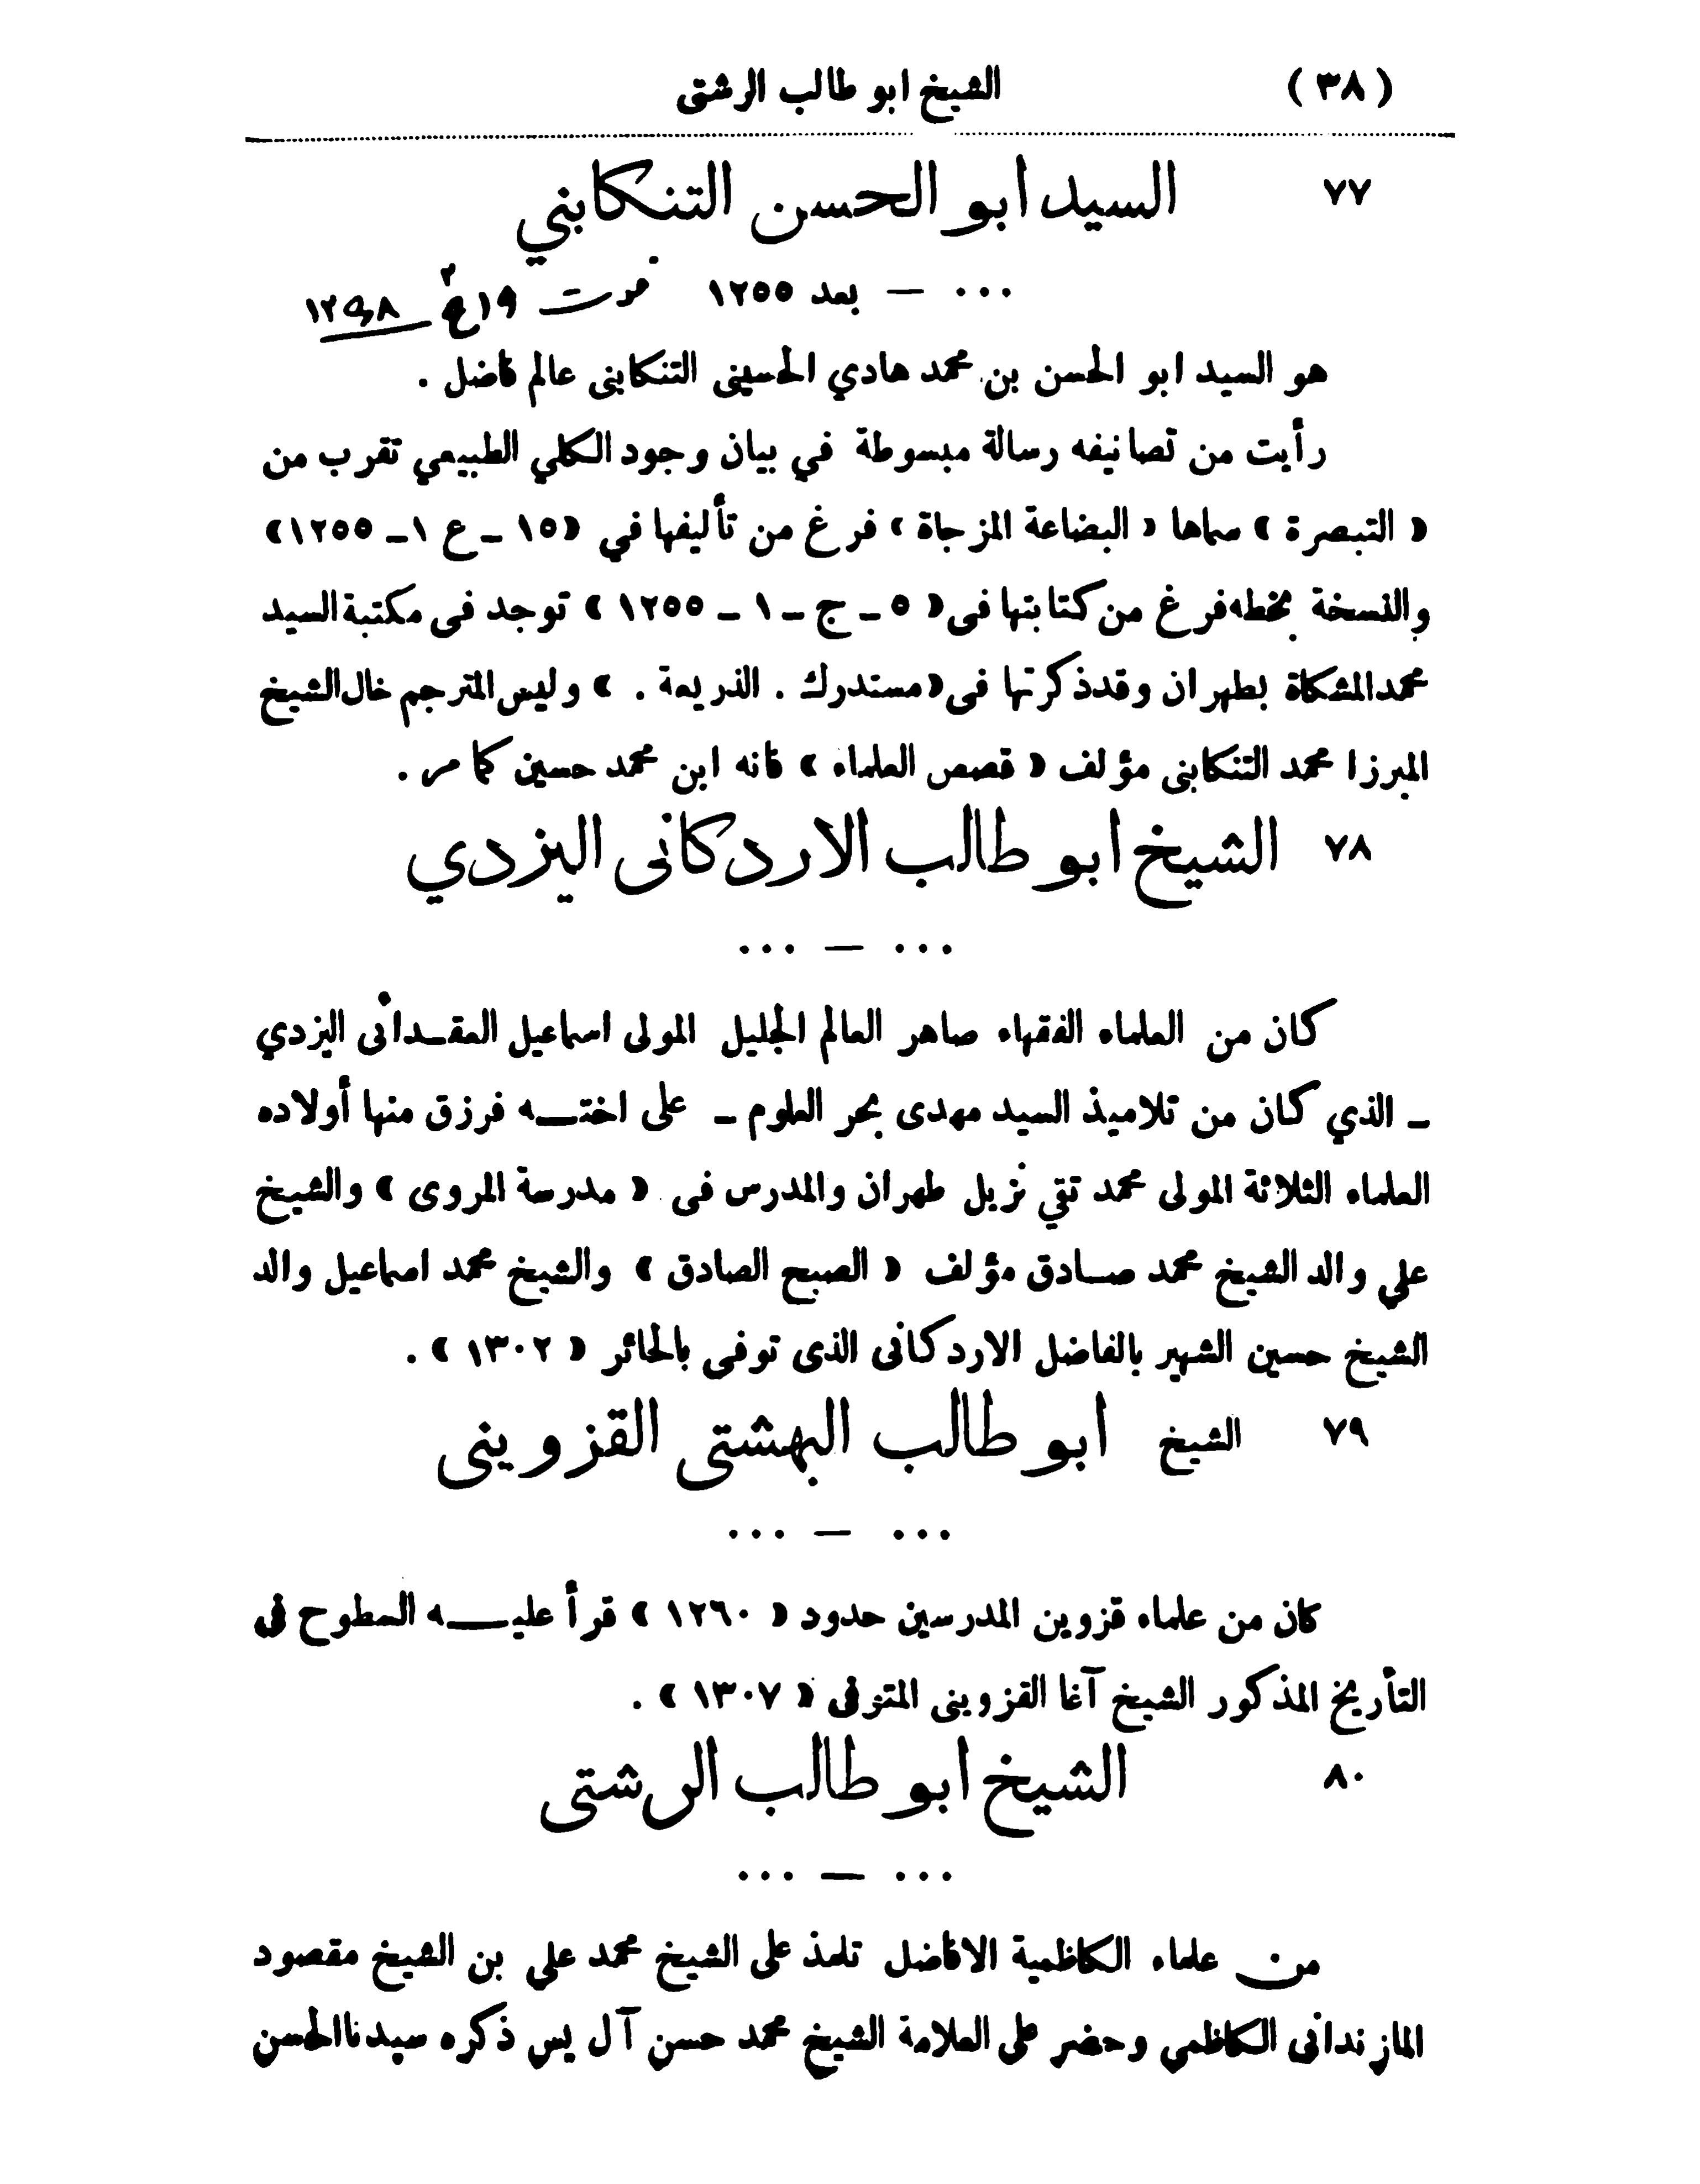 ( ٣٨ ) الشيخ ابو طالب الرشتى
٧٧ السيد ابو الحسن التنكابني
... — بعد ١٢٥٥ فوت ١٩
هو السيد ابو الحسن بن محمد هادي الحسينى التنكابنى عالم فاضل .
رأيت من تصانيفه رسالة مبسوطة في بيان وجود الكلي الطبيعي تقرب من
« التبصرة » سماها « البضاعة المزجاة » فرغ من تأليفها في (١٥ ـ ع ١ ـ ١٢٥٥)
والنسخة بخطه فرغ من كتابتها فى ( ٥ ـ ج ـ ١ ـ ١٢٥٥ ) توجد فى مكتبة السيد
محمد المشكاة بطهران وقد ذكرتها فى « مستدرك . الذريعة . » وليس المترجم خال الشيخ
الميرزا محمد التنكابنى مؤلف « قصص العلماء » فانه ابن محمد حسين كما مر .
٧٨ الشيخ ابو طالب الاردكانى اليزدي
... — ...
كان من العلماء الفقهاء صاهر العالم الجليل المولى اسماعيل العقـدانى اليزدي
ـ الذي كان من تلاميذ السيد مهدى بحر العلوم ـ على اختـــه فرزق منها أولاده
العلماء الثلاثة المولى محمد تقي نزيل طهران والمدرس فى « مدرسة المروى » والشيخ
علي والد الشيخ محمد صــادق مؤلف « الصبح الصادق » والشيخ محمد اسماعيل والد
الشيخ حسين الشهير بالفاضل الاردكانى الذى توفى بالحائر ( ١٣٠٢ ) .
٧٩ الشيخ ابو طالب البهشتى القزوينى
... — ...
كان من علماء قزوين المدرسين حدود ( ١٢٦٠ ) قرأ عليـــه السطوح فى
التأريخ المذكور الشيخ آغا القزوينى المتوفى ( ١٣٠٧ ) .
٨٠ الشيخ ابو طالب الرشتى
... — ...
من علماء الكاظمية الافاضل تلمذ على الشيخ محمد علي بن الشيخ مقصود
المازندانى الكاظمي وحضر على العلامة الشيخ محمد حسن آل يس ذكره سيدنا الحسن